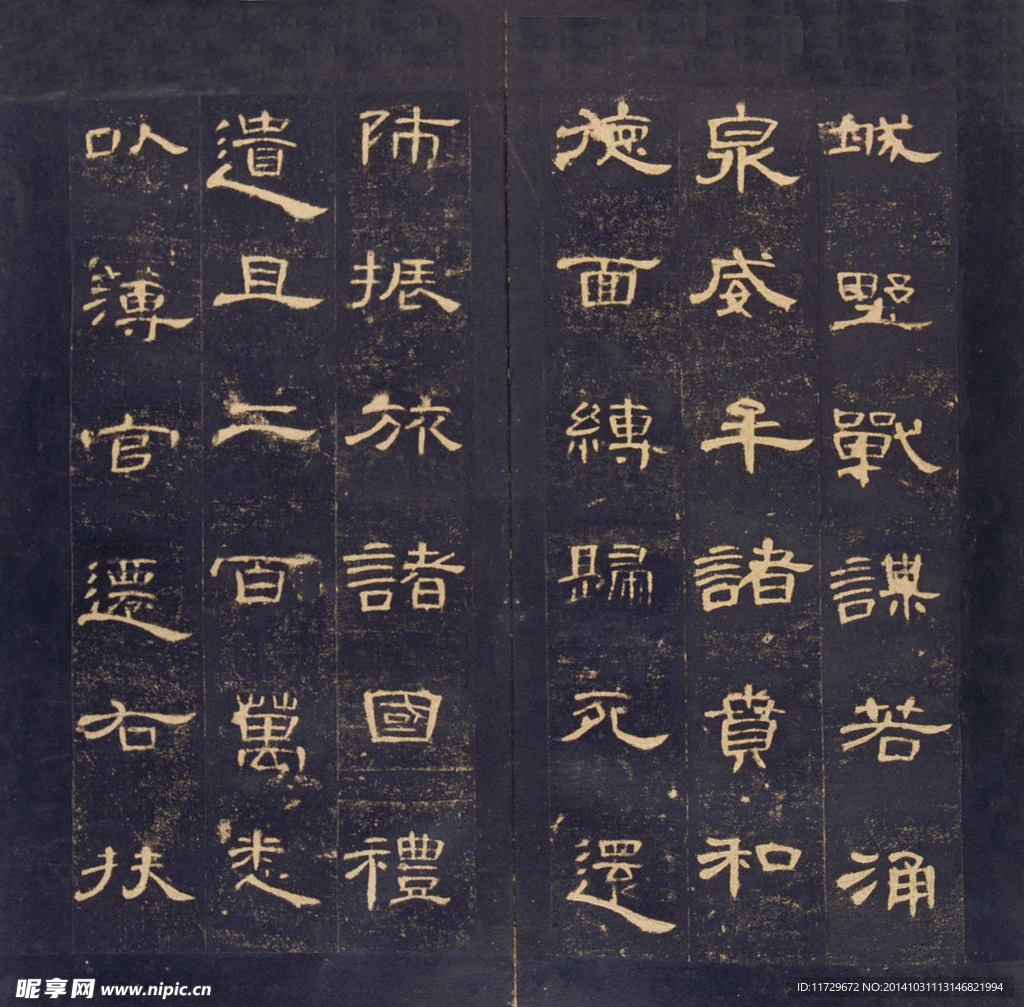 城野戰謀若涌
泉威牟諸賁和
德面縛歸死還
師振旅諸國禮
遺且二百萬悉
以簿官遷右扶
昵享网 www.nipic.cn
ID:11729672 NO:20141031113146821994